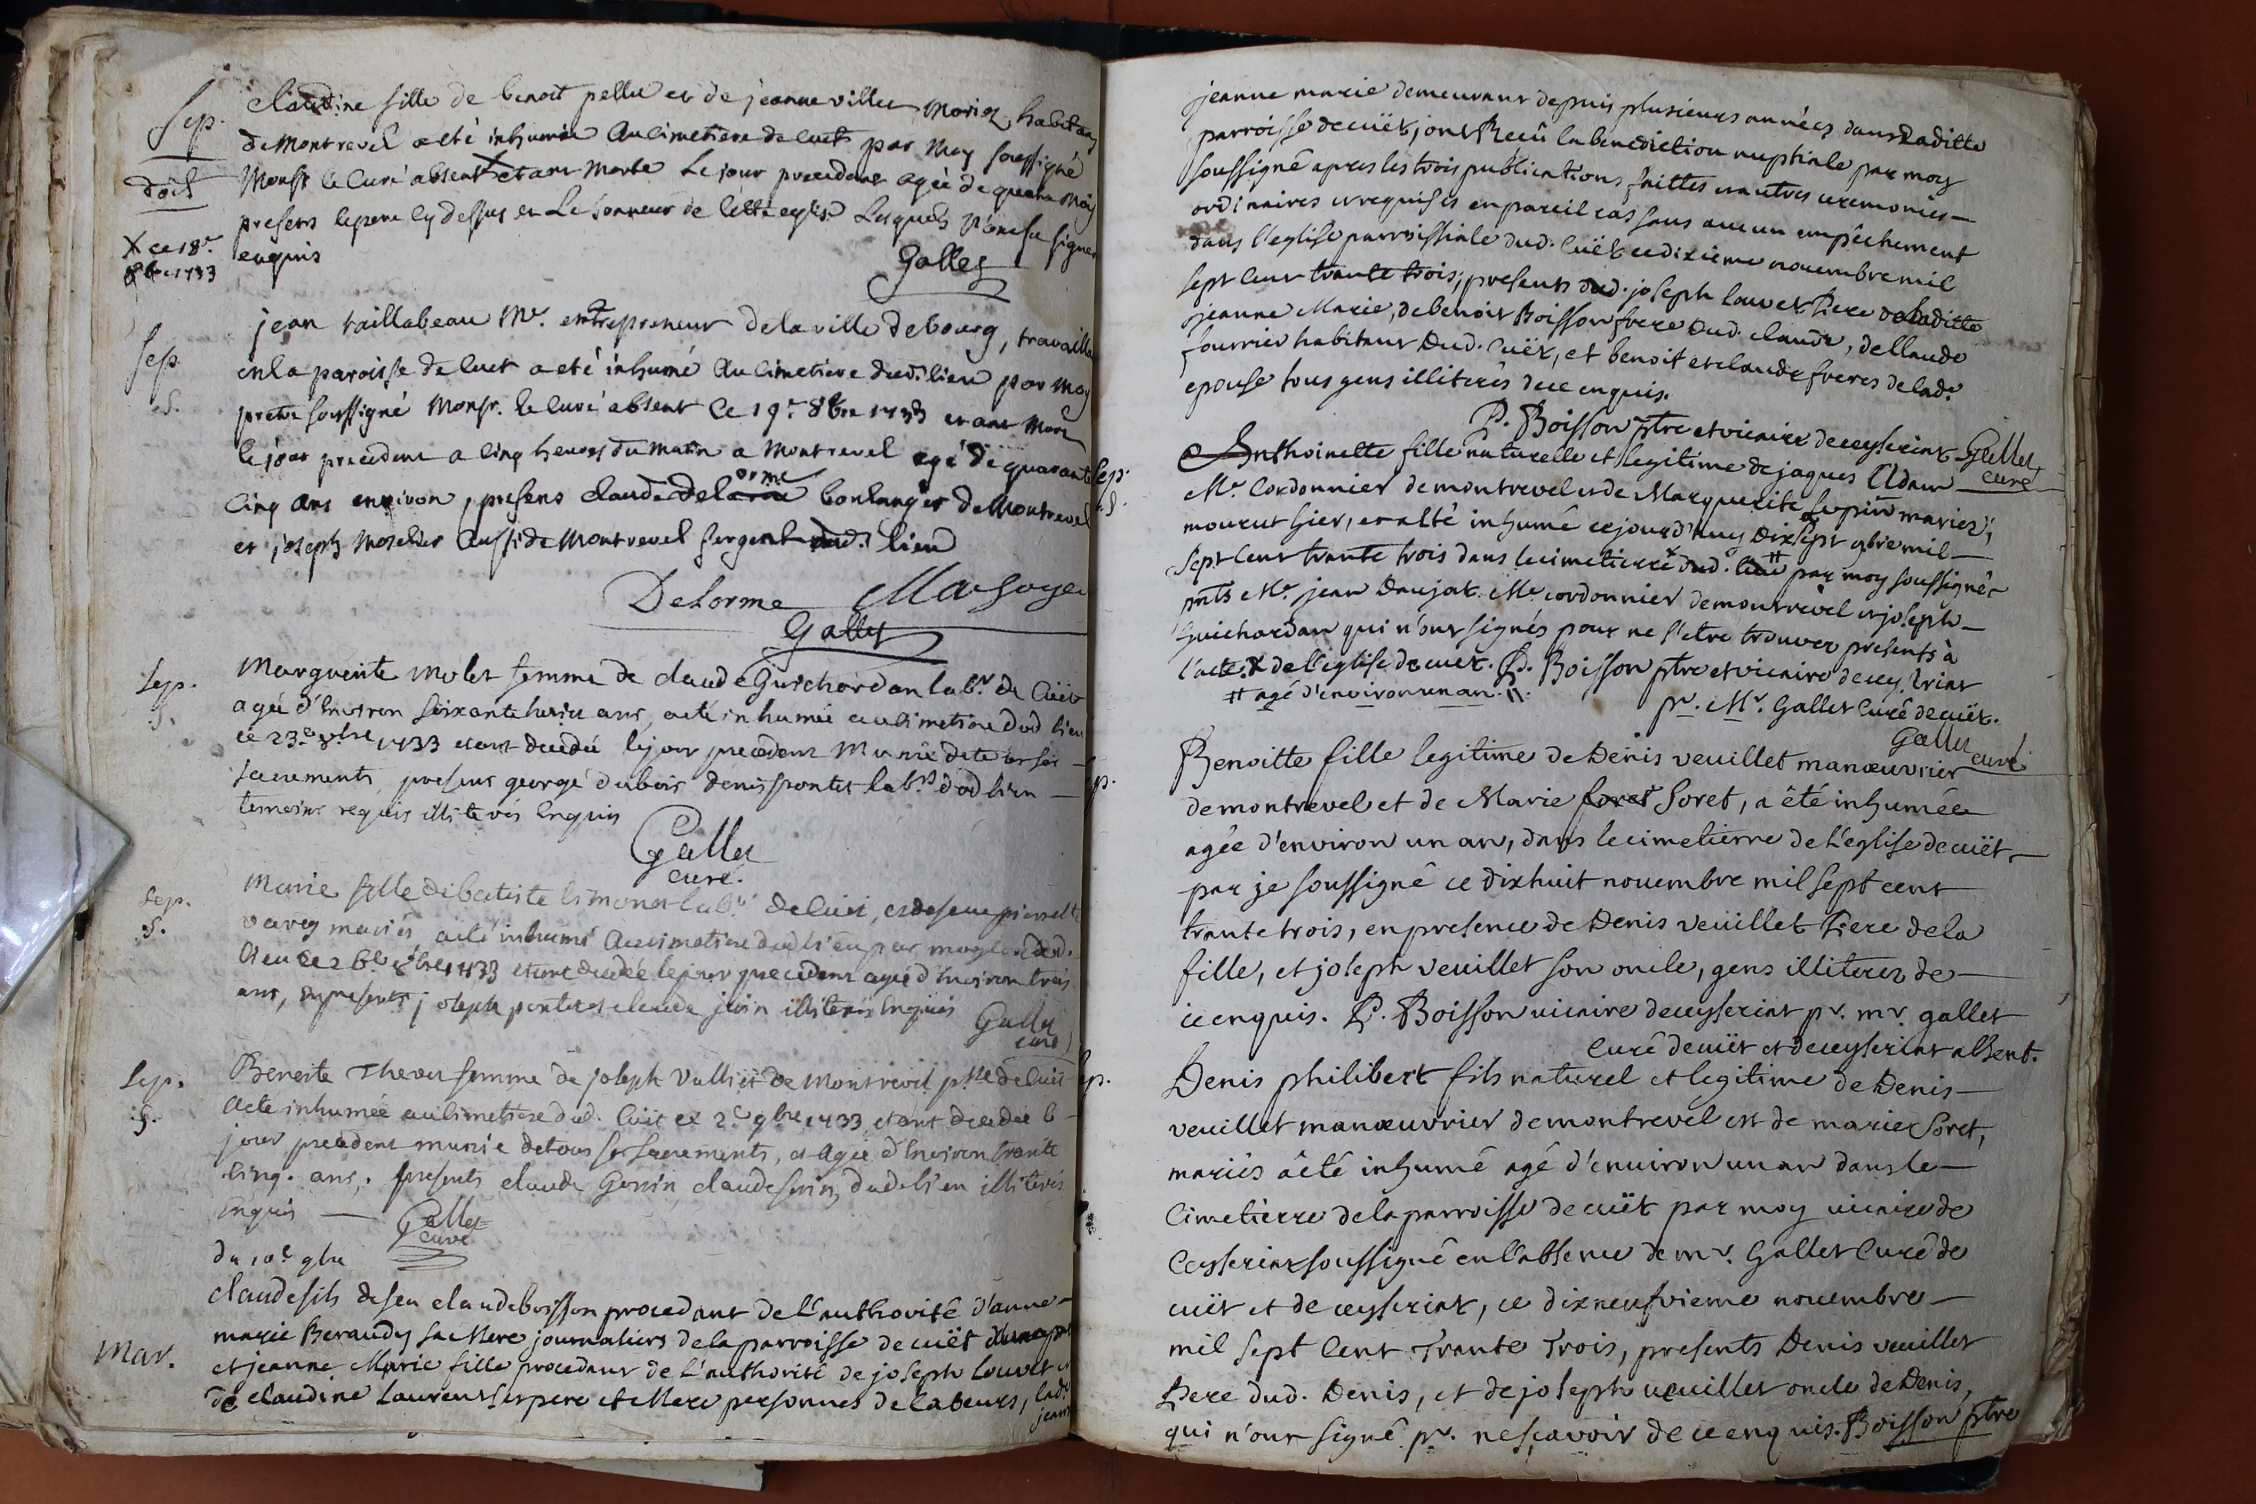 Sep.
doit
X ce 18e
8bre 1733
Claudine fille de benoit pellu et de jeanne villet Mariez, habitans
de Montrevel a eté inhumée Au cimetiere de cuet par Moy soussigné
Monsr le Curé absent X etant Morte Le jour precedent agée de quatre Mois
presens le pere cy dessus et Le sonneur de cette eglise Lesquels n'ont su signer
enquis
Gallet
Sep.
.S.
jean taillabeau Mre. entrepreneur de la ville de bourg, travaillant
en la paroisse de Cuet a eté inhumé Au Cimetiere dud. lieu par Moy
pretre soussigné Monsr. le curé absent Ce 19e 8bre 1733 etant Mort
le jour precedent a cinq heures du Matin a Montrevel agé de quarante
Cinq Ans environ, presens claude Delorme boulanger de Montrevel
et joseph Aussi de Montrevel sergent dud. lieu
Delorme
Gallet
Sep.
.S.
Marguerite Molet femme de claude Guichardan labr. de Cuët
agée d'Environ soixante huit ans, a eté inhumée au cimetiere dud lieu
ce 23e 8bre 1733 etant decedée le jour precedent Munie de tous ses
sacrements, presens george dubois denis pontet labrs dud lieu
temoins requis illiterés Enquis
Gallet
curé.
Sep.
.S.
Marie fille de batiste labr. de Cuet, et de
mariés, a eté inhumé Au cimetiere dud lieu par moy curé dud.
lieu ce 26e 8bre 1733 etant decedée le jour precedent agée d'Environ trois
ans, En presents joseph pontet et claude illiterés Enquis
Gallet
curé
Sep.
.S.
Benoite Thevet femme de joseph Vulliet de Montrevel psse de Cuet
a eté inhumée au cimetiere dud. Cuet ce 2e 9bre 1733 etant decedée le
jour precedent munie de tous ses sacrements, et Agée d'Environ trante
cinq. ans, presents claude Gonin claude dud. lieu illiterés
Enquis
Gallet
curé
Mar.
du 10e 9bre
claude fils de feu claude boisson procedant de l'authorité d'anne
marie Beraudy sa Mere journaliers de la parroisse de cuët
et jeanne Marie fille procedant de L'authorité de joseph Louvet et
de claudine Laurent ses pere et Mere personnes de labeurs, lade
jeanne
jeanne marie demeurant depuis plusieurs années dans Laditte
parroisse de cuët, ont Reçû la benediction nuptiale par moy
soussigné apres les trois publications faittes et autres ceremonies
ordinaires et requises en pareil cas sans aucun empêchement
dans l'eglise parroissiale dud. Cuët ce dixieme novembre mil
sept cent trante trois; presents dud. joseph Louvet Pere de laditte
jeanne Marie, de benoit Boisson frere Dud. claude, de Claude
fourrier habitant Dud. Cuët, et benoit et claude freres de lade.
epouse tous gens illiterés de ce enquis.
P. Boisson ptre et vicaire de ceyseriat Gallet
curé
Sep.
.S.
Anthoinette fille naturelle et legitime de jaques Adam
Me. Cordonnier de montrevel et de Marguerite Lupin mariez,
mourut hier, et a eté inhumé ce jourd'huy Dix sept 9bre mil
sept cent trante trois dans le cimetierre X dud. lieu # par moy soussigné
pnts Me. jean Daujat Me cordonnier de montrevel et joseph
Guichardan qui n'ont signés pour ne s'etre trouvez presents à
l'acte. X de l'eglise de cuët. P. Boisson ptre et vicaire de ceyseriat
# agé d'environ un an. //.
pr. Mr. Gallet Curé de cuët.
Gallet
curé
Sep.
Benoitte fille legitime de Denis veuillet manœuvrier
de montrevel et de Marie Soret, a êté inhumée
agée d'environ un an, dans le cimetierre de L'eglise de cuët,
par je soussigné ce dixhuit novembre mil sept cent
trante trois, en presence de Denis veüillet Pere de la
fille, et joseph veuillet son oncle, gens illiterez de
ce enquis. P. Boisson vicaire de ceyseriat pr. mr. gallet
Curé de cuët et de ceyseriat absent.
Sep.
Denis philibert fils naturel et legitime de Denis
veuillet manœuvrier de montrevel et de marie Soret,
mariés a êté inhumé agé d'environ un an dans le
Cimetierre de la parroisse de cuët par moy vicaire de
Ceyseriat soussigné en l'absence de mr. Gallet Curé de
cuët et de ceyseriat, ce dix neufvieme novembre
mil sept Cent Trante Trois, presents Denis veuillet
Pere dud. Denis, et de joseph veuillet oncle de Denis,
qui n'ont signé pr. ne sçavoir de ce enquis. Boisson ptre